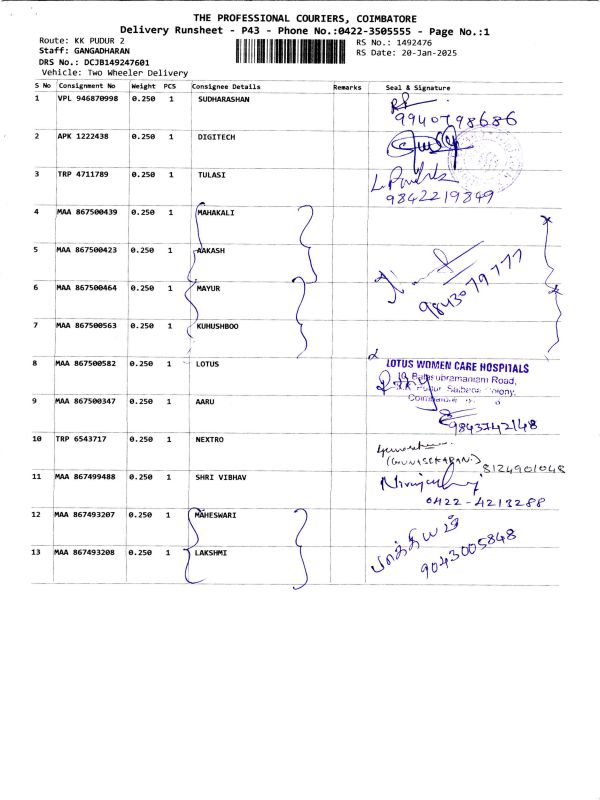 THE PROFESSIONAL COURIERS, COIMBATORE
Delivery Runsheet - P43 - Phone No.:0422-3505555 - Page No.:1
Route: KK PUDUR 2
RS No.: 1492476
Staff: GANGADHARAN
RS Date: 20-Jan-2025
DRS No.: DCJB149247601
Vehicle: Two Wheeler Delivery
S No Consignment No Weight PCS Consignee Details Remarks Seal & Signature
1 VPL 946870998 0.250 1 SUDHARASHAN
9940798686
2 APK 1222438 0.250 1 DIGITECH
3 TRP 4711789 0.250 1 TULASI
9842219849
4 MAA 867500439 0.250 1 MAHAKALI
5 MAA 867500423 0.250 1 AAKASH
6 MAA 867500464 0.250 1 MAYUR
9843079777
7 MAA 867500563 0.250 1 KUHUSHBOO
8 MAA 867500582 0.250 1 LOTUS
LOTUS WOMEN CARE HOSPITALS
Road,
Colony,
9 MAA 867500347 0.250 1 AARU
9843742148
10 TRP 6543717 0.250 1 NEXTRO
(GUNASEKARAN)
8124901048
11 MAA 867499488 0.250 1 SHRI VIBHAV
0422-4213288
12 MAA 867493207 0.250 1 MAHESWARI
13 MAA 867493208 0.250 1 LAKSHMI
9043005848